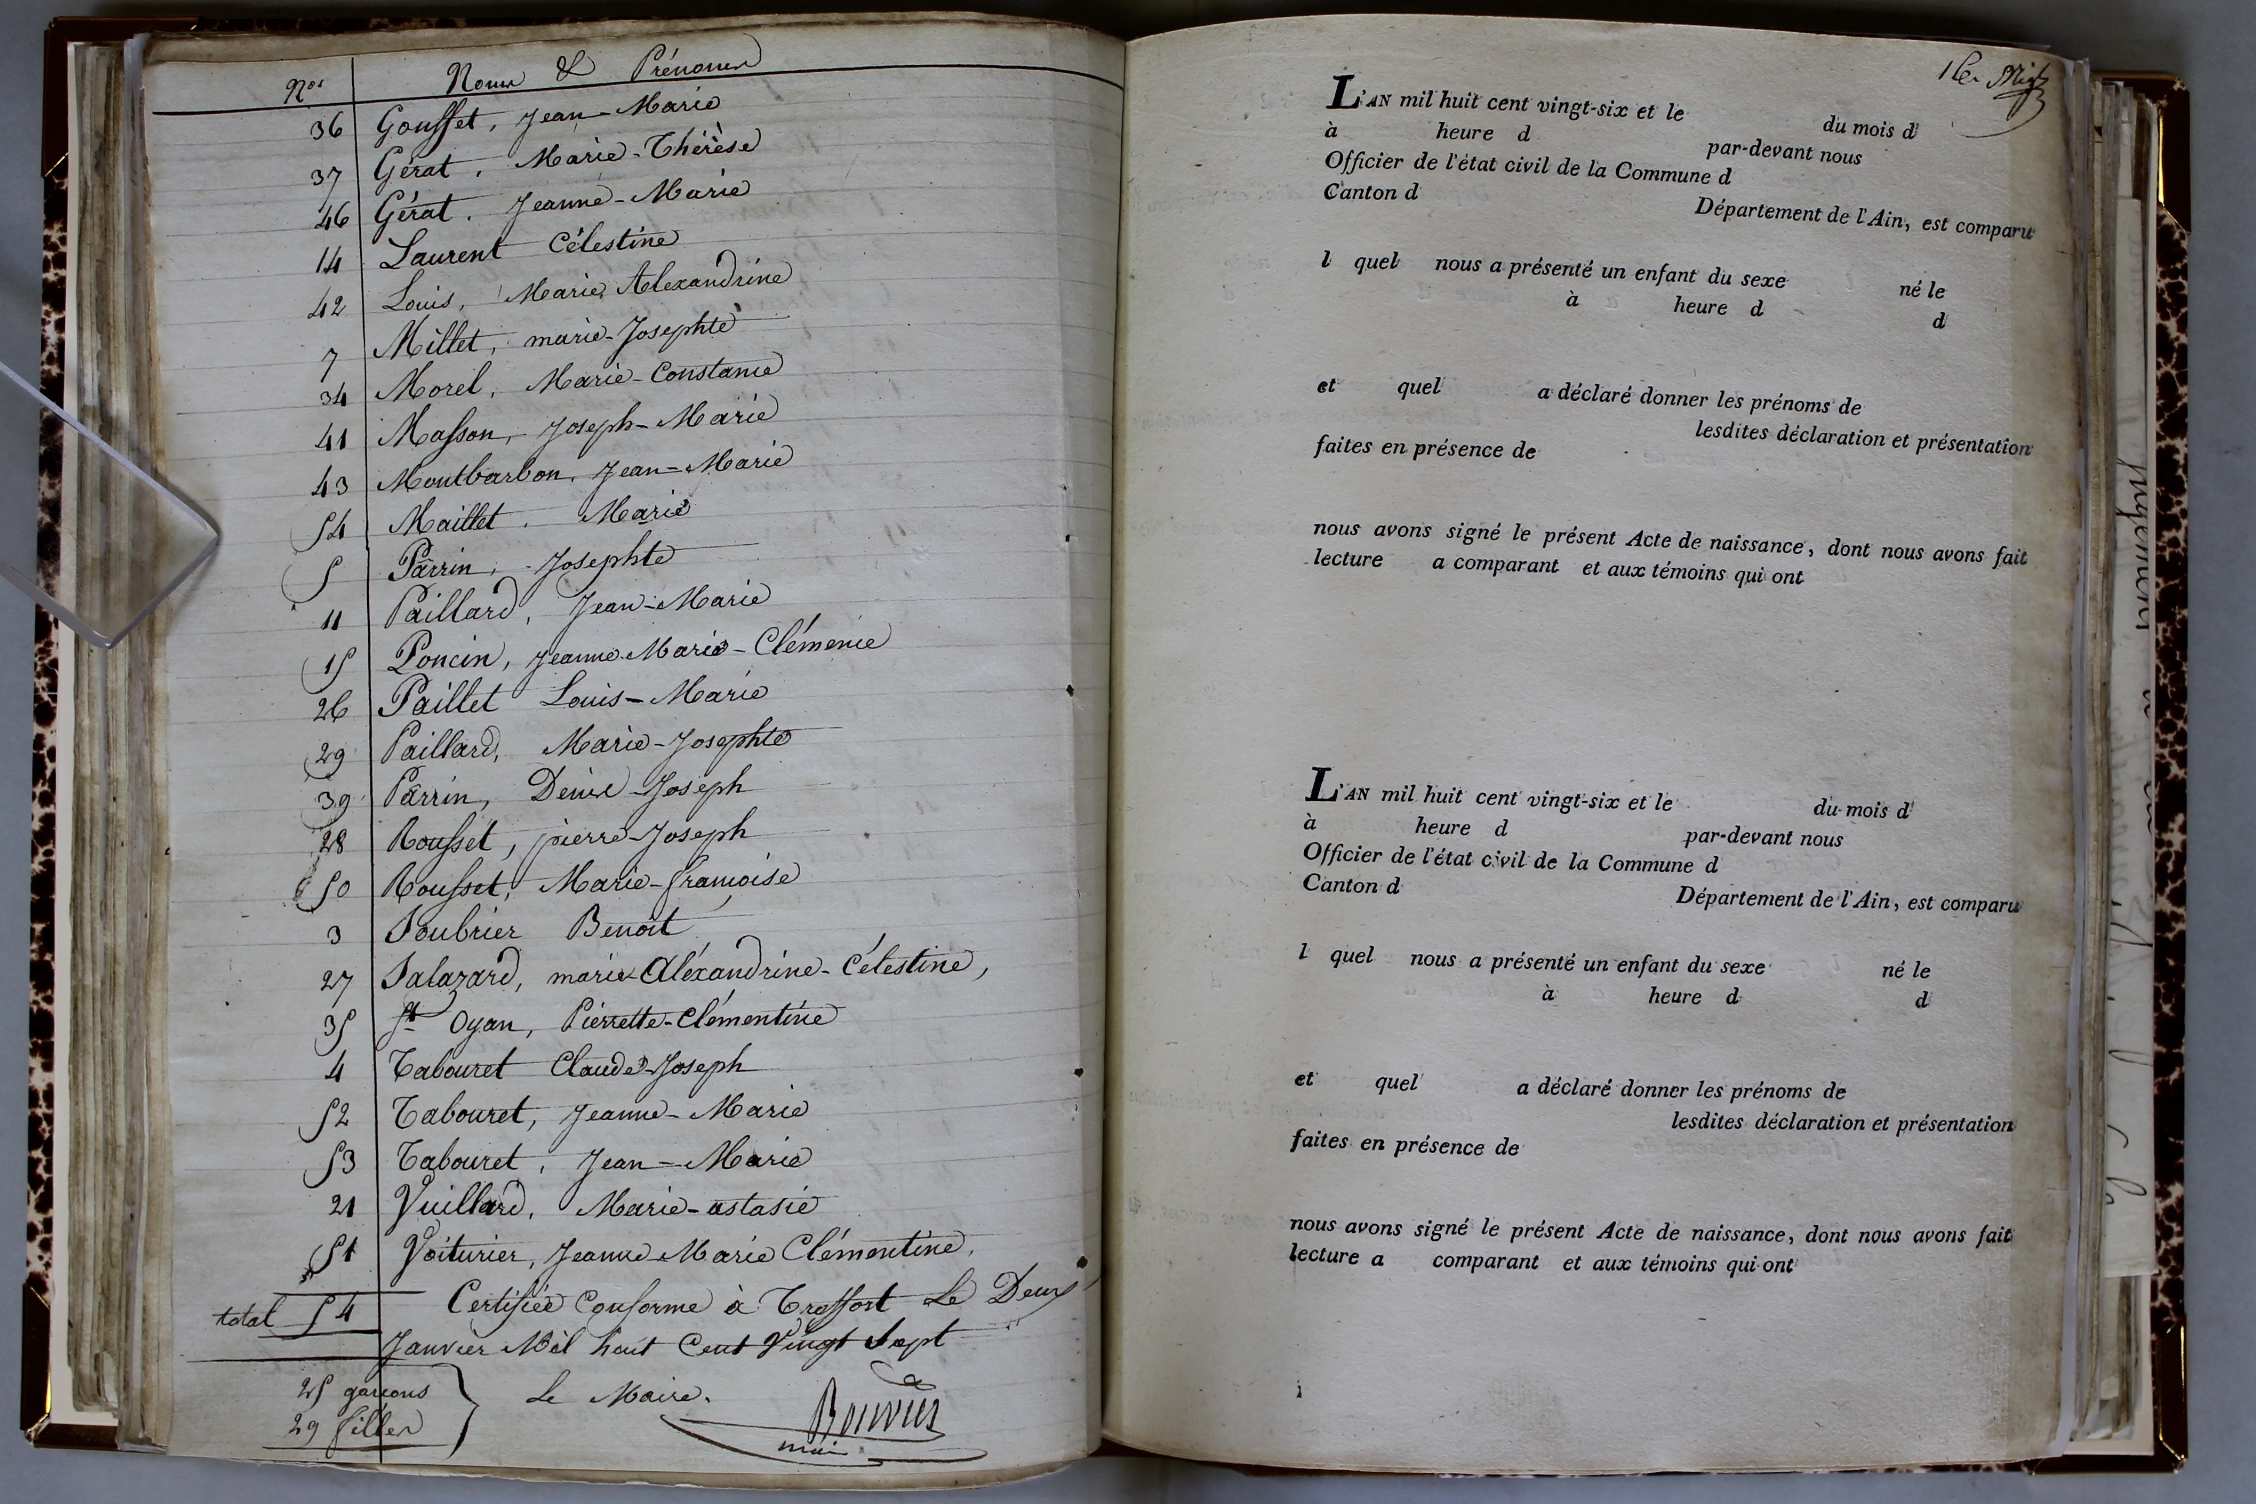 Nos Noms & Prénoms
36 Gousset, Jean-Marie
37 Gérat, Marie-Thérèse
46 Gérat, Jeanne-Marie
14 Laurent Célestine
42 Louis, Marie Alexandrine
7 Millet, marie-Josephte
34 Morel, Marie-Constance
41 Masson, Joseph-Marie
43 Montbarbon, Jean-Marie
54 Maillet, Marie
5 Parrin, Josephte
11 Paillard, Jean-Marie
15 Poncin, Jeanne Marie-Clémence
26 Paillet Louis-Marie
29 Paillard, Marie-Josephte
39 Parrin, Denis-Joseph
28 Rousset, pierre-Joseph
50 Rousset, Marie-françoise
3 Soubrier Benoit
27 Salazard, marie-Aléxandrine-Célestine,
35 St Oyan, Pierrette-Clémentine
4 Tabouret Claude-Joseph
52 Tabouret, Jeanne-Marie
53 Tabouret, Jean-Marie
21 Vuillard, Marie-astasie
51 Voiturier, Jeanne Marie Clémentine,
total 54 Certifiée Conforme à Treffort Le Deux
Janvier Mil huit Cent Vingt Sept
25 garçons
29 filles
Le Maire.
Bouvier
L'AN mil huit cent vingt-six et le du mois d
à heure d par-devant nous
Officier de l'état civil de la Commune d
Canton d Département de l'Ain, est comparu
l quel nous a présenté un enfant du sexe né le
à heure d d
et quel a déclaré donner les prénoms de
lesdites déclaration et présentation
faites en présence de
nous avons signé le présent Acte de naissance, dont nous avons fait
lecture a comparant et aux témoins qui ont
L'AN mil huit cent vingt-six et le du mois d
à heure d par-devant nous
Officier de l'état civil de la Commune d
Canton d Département de l'Ain, est comparu
l quel nous a présenté un enfant du sexe né le
à heure d d
et quel a déclaré donner les prénoms de
lesdites déclaration et présentation
faites en présence de
nous avons signé le présent Acte de naissance, dont nous avons fait
lecture a comparant et aux témoins qui ont